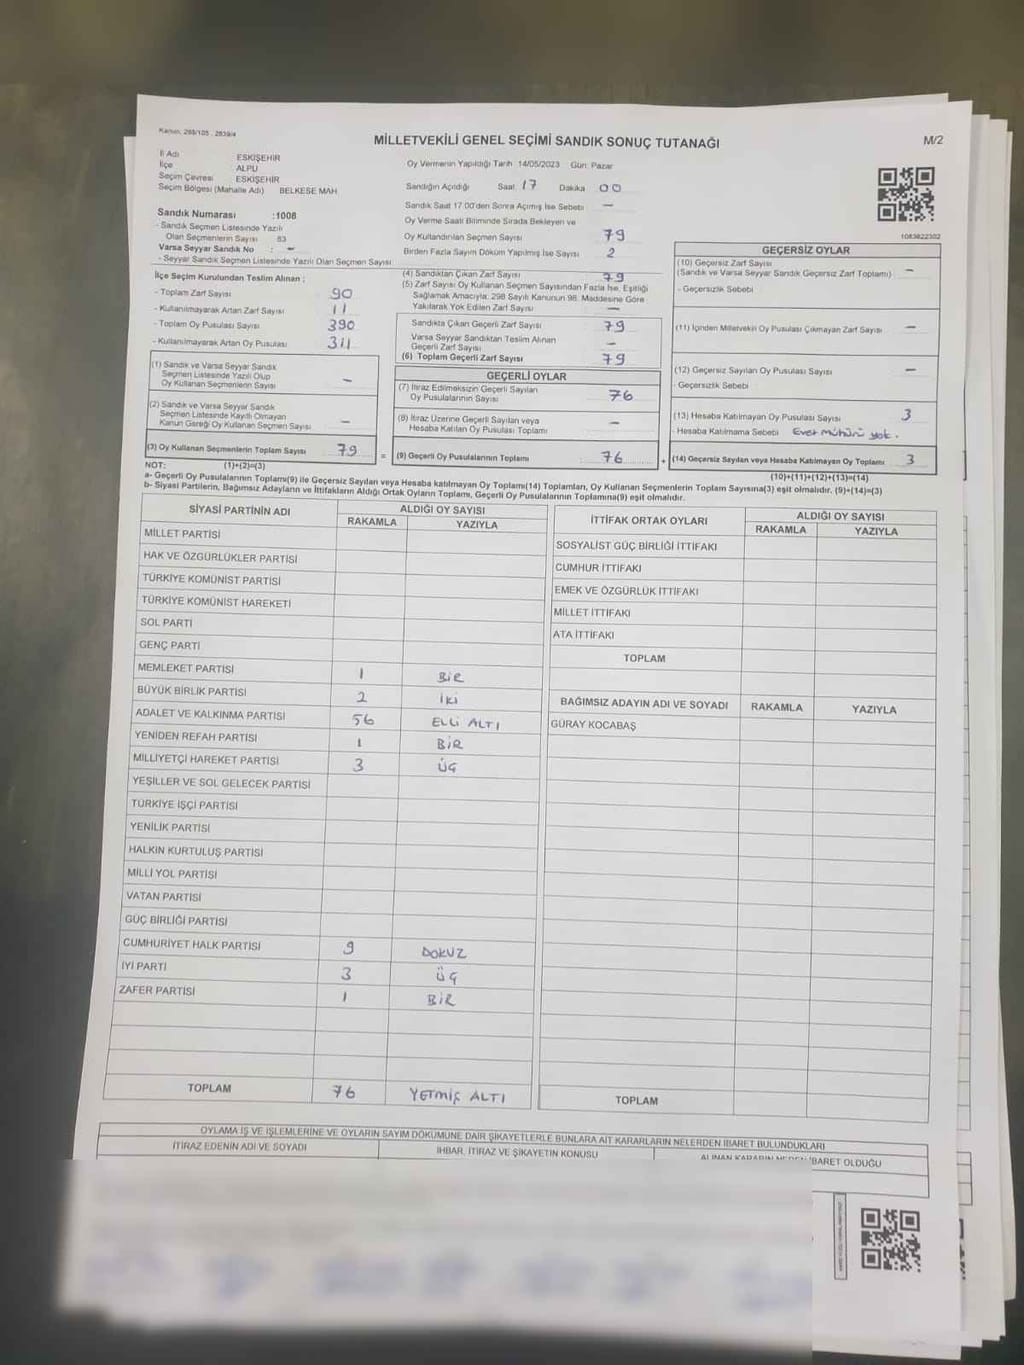 Kanun: 298/105 , 2839/4
MİLLETVEKİLİ GENEL SEÇİMİ SANDIK SONUÇ TUTANAĞI
M/2
İl Adı ESKİŞEHİR
İlçe ALPU
Seçim Çevresi ESKİŞEHİR
Seçim Bölgesi (Mahalle Adı) BELKESE MAH
Sandık Numarası :1008
- Sandık Seçmen Listesinde Yazılı
Olan Seçmenlerin Sayısı 83
Varsa Seyyar Sandık No : -
- Seyyar Sandık Seçmen Listesinde Yazılı Olan Seçmen Sayısı
Oy Vermenin Yapıldığı Tarih 14/05/2023 Gün: Pazar
Sandığın Açıldığı Saat 17 Dakika 00
Sandık Saat 17.00'den Sonra Açımış İse Sebebi -
Oy Verme Saati Bitiminde Sırada Bekleyen ve
Oy Kullandırılan Seçmen Sayısı 79
Birden Fazla Sayım Döküm Yapılmış İse Sayısı 2
1083822302
İlçe Seçim Kurulundan Teslim Alınan ;
- Toplam Zarf Sayısı 90
- Kullanılmayarak Artan Zarf Sayısı 11
- Toplam Oy Pusulası Sayısı 390
- Kullanılmayarak Artan Oy Pusulası 311
(1) Sandık ve Varsa Seyyar Sandık
Seçmen Listesinde Yazılı Olup
Oy Kullanan Seçmenlerin Sayısı -
(2) Sandık ve Varsa Seyyar Sandık
Seçmen Listesinde Kayıtlı Olmayan
Kanun Gereği Oy Kullanan Seçmen Sayısı -
(3) Oy Kullanan Seçmenlerin Toplam Sayısı 79
=
(4) Sandıktan Çıkan Zarf Sayısı 79
(5) Zarf Sayısı Oy Kullanan Seçmen Sayısından Fazla İse, Eşitliği
Sağlamak Amacıyla; 298 Sayılı Kanunun 98. Maddesine Göre
Yakılarak Yok Edilen Zarf Sayısı -
Sandıkta Çıkan Geçerli Zarf Sayısı 79
Varsa Seyyar Sandıktan Teslim Alınan
Geçerli Zarf Sayısı -
(6) Toplam Geçerli Zarf Sayısı 79
GEÇERLİ OYLAR
(7) İtiraz Edilmeksizin Geçerli Sayılan
Oy Pusulalarının Sayısı 76
(8) İtiraz Üzerine Geçerli Sayılan veya
Hesaba Katılan Oy Pusulası Toplamı -
(9) Geçerli Oy Pusulalarının Toplamı 76
+
GEÇERSİZ OYLAR
(10) Geçersiz Zarf Sayısı
(Sandık ve Varsa Seyyar Sandık Geçersiz Zarf Toplamı) -
- Geçersizlik Sebebi
(11) İçinden Milletvekili Oy Pusulası Çıkmayan Zarf Sayısı -
(12) Geçersiz Sayılan Oy Pusulası Sayısı -
- Geçersizlik Sebebi
(13) Hesaba Katılmayan Oy Pusulası Sayısı 3
- Hesaba Katılmama Sebebi Evet mührü yok.
(14) Geçersiz Sayılan veya Hesaba Katılmayan Oy Toplamı 3
NOT: (1)+(2)=(3)
(10)+(11)+(12)+(13)=(14)
a- Geçerli Oy Pusulalarının Toplamı(9) ile Geçersiz Sayılan veya Hesaba katılmayan Oy Toplamı(14) Toplamları, Oy Kullanan Seçmenlerin Toplam Sayısına(3) eşit olmalıdır. (9)+(14)=(3)
b- Siyasi Partilerin, Bağımsız Adayların ve İttifakların Aldığı Ortak Oyların Toplamı, Geçerli Oy Pusulalarının Toplamına(9) eşit olmalıdır.
SİYASİ PARTİNİN ADI ALDIĞI OY SAYISI
RAKAMLA YAZIYLA
MİLLET PARTİSİ
HAK VE ÖZGÜRLÜKLER PARTİSİ
TÜRKİYE KOMÜNİST PARTİSİ
TÜRKİYE KOMÜNİST HAREKETİ
SOL PARTİ
GENÇ PARTİ
MEMLEKET PARTİSİ 1 BİR
BÜYÜK BİRLİK PARTİSİ 2 İKİ
ADALET VE KALKINMA PARTİSİ 56 ELLİ ALTI
YENİDEN REFAH PARTİSİ 1 BİR
MİLLİYETÇİ HAREKET PARTİSİ 3 ÜÇ
YEŞİLLER VE SOL GELECEK PARTİSİ
TÜRKİYE İŞÇİ PARTİSİ
YENİLİK PARTİSİ
HALKIN KURTULUŞ PARTİSİ
MİLLİ YOL PARTİSİ
VATAN PARTİSİ
GÜÇ BİRLİĞİ PARTİSİ
CUMHURİYET HALK PARTİSİ 9 DOKUZ
İYİ PARTİ 3 ÜÇ
ZAFER PARTİSİ 1 BİR
TOPLAM 76 YETMİŞ ALTI
İTTİFAK ORTAK OYLARI ALDIĞI OY SAYISI
RAKAMLA YAZIYLA
SOSYALİST GÜÇ BİRLİĞİ İTTİFAKI
CUMHUR İTTİFAKI
EMEK VE ÖZGÜRLÜK İTTİFAKI
MİLLET İTTİFAKI
ATA İTTİFAKI
TOPLAM
BAĞIMSIZ ADAYIN ADI VE SOYADI RAKAMLA YAZIYLA
GÜRAY KOCABAŞ
TOPLAM
OYLAMA İŞ VE İŞLEMLERİNE VE OYLARIN SAYIM DÖKÜMÜNE DAİR ŞİKAYETLERLE BUNLARA AİT KARARLARIN NELERDEN İBARET BULUNDUKLARI
İTİRAZ EDENİN ADI VE SOYADI İHBAR, İTİRAZ VE ŞİKAYETİN KONUSU ALINAN KARARIN NEDEN İBARET OLDUĞU